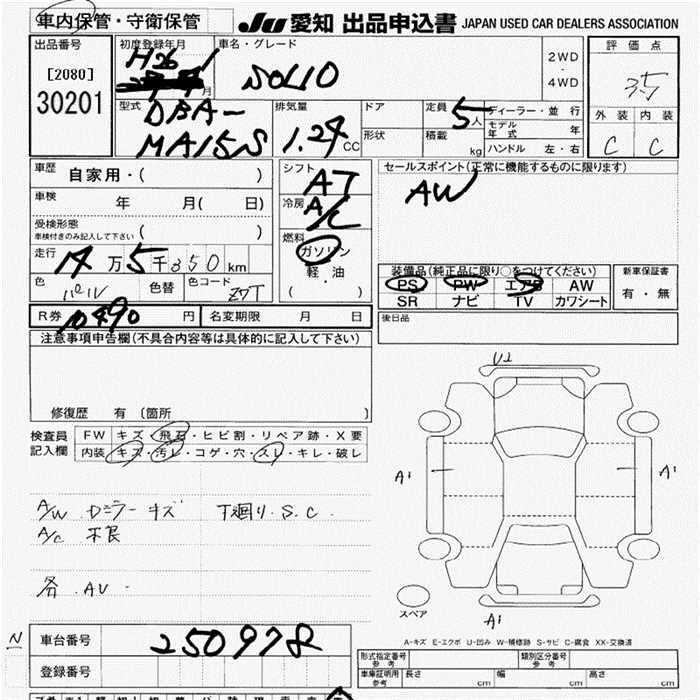 車内保管・守衛保管
JU 愛知 出品申込書 JAPAN USED CAR DEALERS ASSOCIATION
出品番号
[2080]
30201
初度登録年月
H26 1
月
車名・グレード
SOLIO
2WD
・
4WD
評価点
3.5
外装 内装
C C
型式
DBA-
MA15S
排気量
1.24 CC
ドア
形状
定員
5人
積載
kg
ディーラー・並行
モデル年式 年
ハンドル 左・右
車歴
自家用・( )
車検
年 月( 日)
受検形態
車検付きのみ記入して下さい ( )
走行
14万5千350km
色
パール
色替
色コード
Z7T
シフト
AT
冷房
A/C
燃料
ガソリン
軽油
( ・ )
セールスポイント(正常に機能するものに限ります)
AW
装備品(純正品に限り○をつけてください)
PS PW エアB AW
SR ナビ TV カワシート
新車保証書
有・無
R券
10490円
名変期限 月 日
後日品
注意事項申告欄(不具合内容等は具体的に記入して下さい)
修復歴 有 〔箇所 〕
検査員
記入欄
FW キズ・飛石・ヒビ割・リペア跡・X要
内装 キズ・汚レ・コゲ・穴・スレ・キレ・破レ
A/W カニラー キズ 下廻り.S.C.
A/C 不良
各.AU.
U2
A1
A1
A1
スペア
A-キズ E-エクボ U-凹み W-補修跡 S-サビ C-腐食 XX-交換済
N
車台番号
250978
登録番号
形式指定番号
参考
類別区分番号
参考
車庫証明用
参考
長さ cm 幅 cm 高さ cm